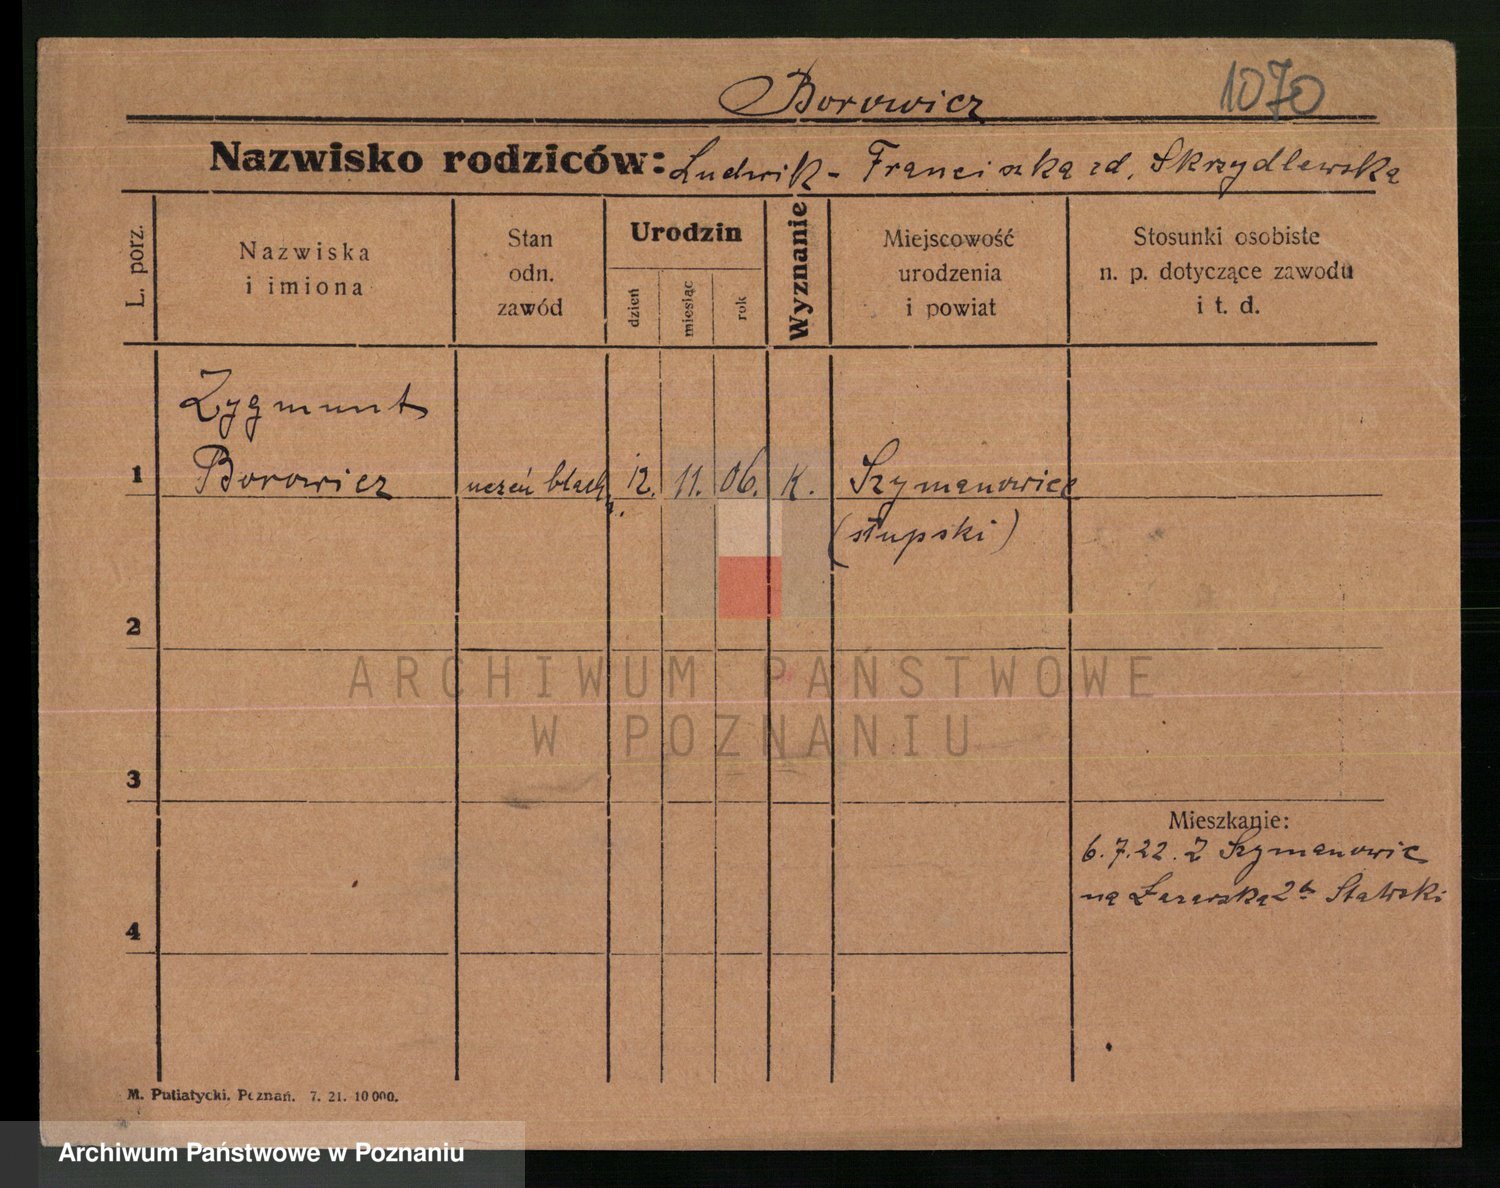 Borowicz 1070
Nazwisko rodziców: Ludwik - Franciszka zd. Skrzydlewska
L. porz.
Nazwiska
i imiona
Stan
odn.
zawód
Urodzin
dzień
miesiąc
rok
Wyznanie
Miejscowość
urodzenia
i powiat
Stosunki osobiste
n. p. dotyczące zawodu
i t. d.
Zygmunt
1 Borowicz uczeń blach. 12. 11. 06. K. Szymanowice
(słupski)
2
ARCHIWUM PAŃSTWOWE
W POZNANIU
3
Mieszkanie:
6.7.22. Z Szymanowic
na Łazarską 2b Stawski
4
M. Putiatycki. Poznań. 7. 21. 10 000.
Archiwum Państwowe w Poznaniu